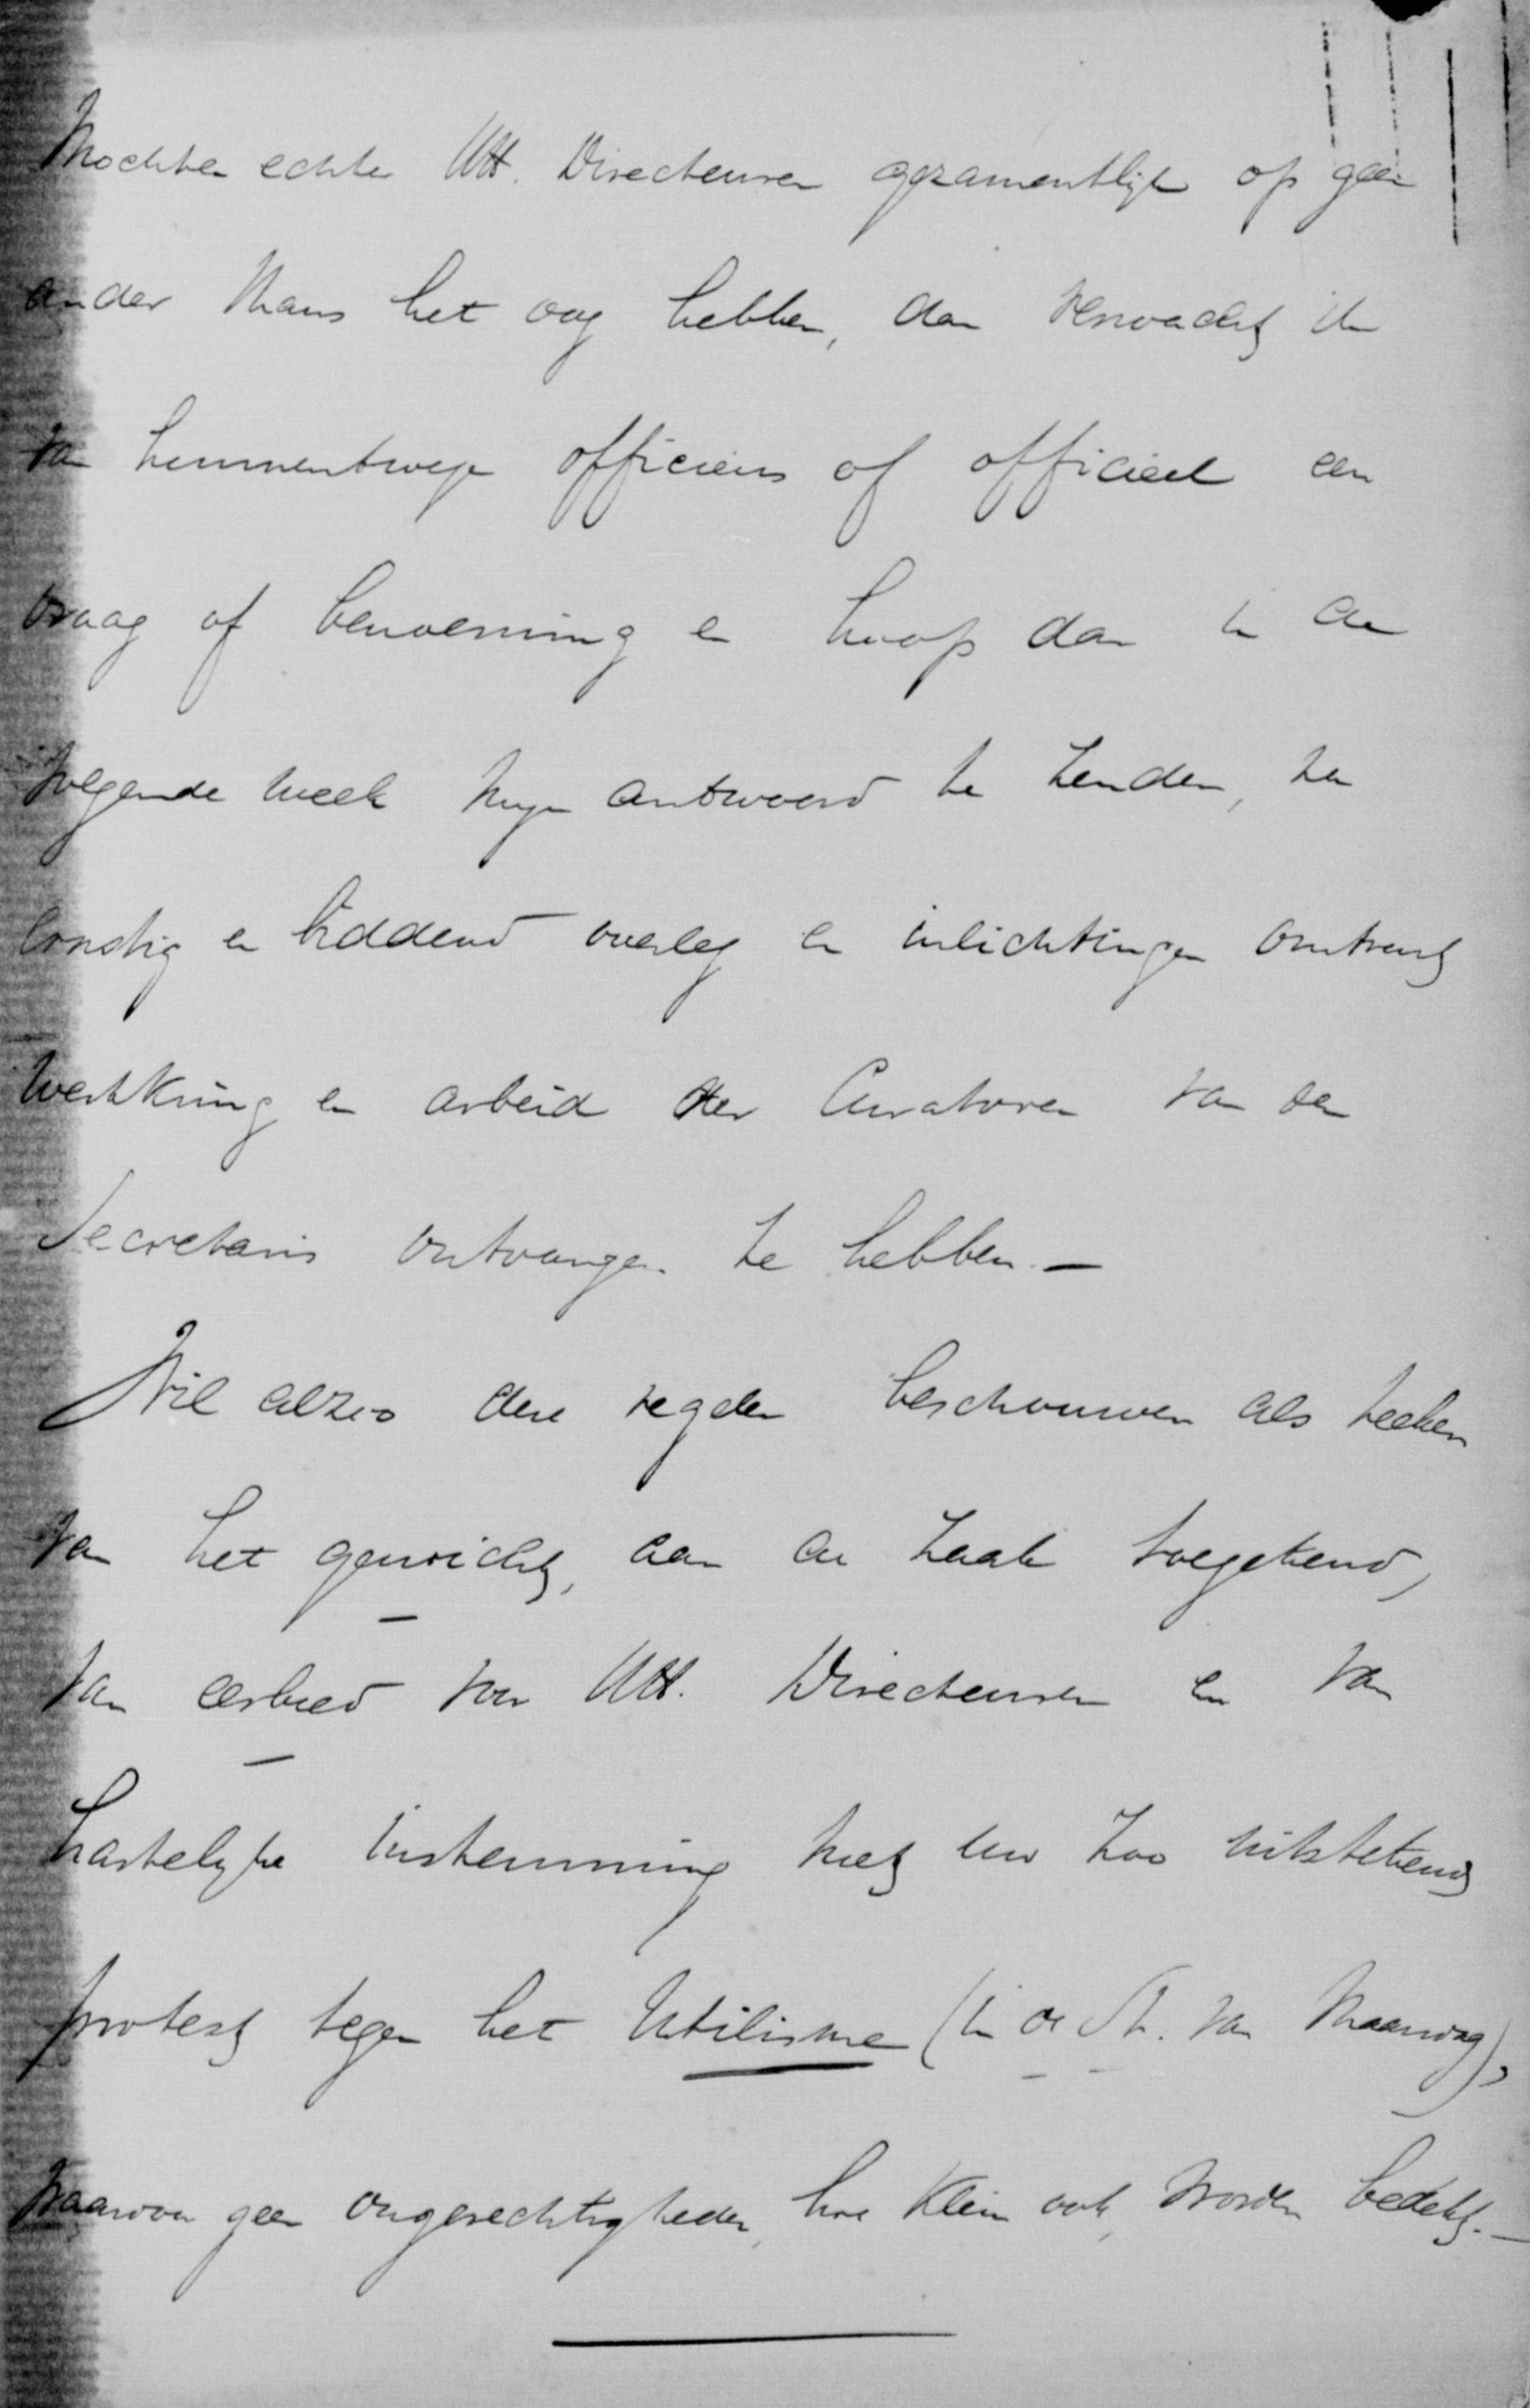 Mochten echter HH. Directeuren gezamentlijk op geen
ander thans het oog hebben, dan verwacht ik
van hunnentwege officieus of officieel een
vraag of benoeming en hoop dan in de
volgende week mijn antwoord te zenden, na
ernstig en biddend overleg en inlichtingen omtrent
werkkring en arbeid der Curatoren van den
Secretaris ontvangen te hebben. —
Wil alzoo deze regelen beschouwen als teeken
van het gewicht, aan de zaak toegekend,
van eerbied voor HH. Directeuren en van
hartelijke instemming met uw zoo uitstekend
protest tegen het Utilisme (in de St. van Maandag),
waarvoor geen ongerechtigheden, hoe klein ook, worden bedekt. —